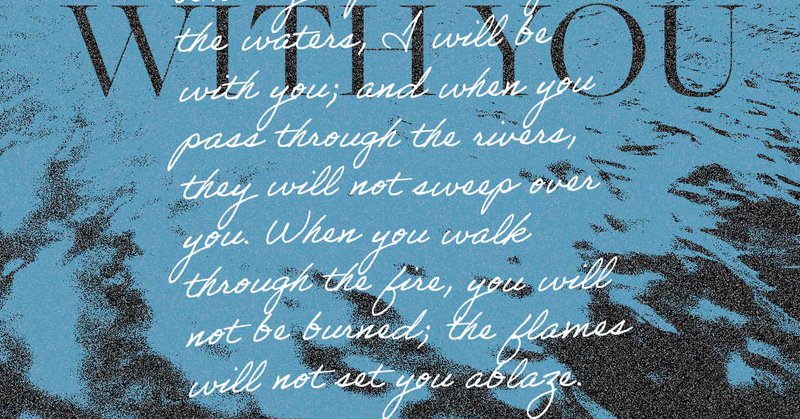 WITH YOU
the waters, I will be
with you; and when you
pass through the rivers,
they will not sweep over
you. When you walk
through the fire, you will
not be burned; the flames
will not set you ablaze.